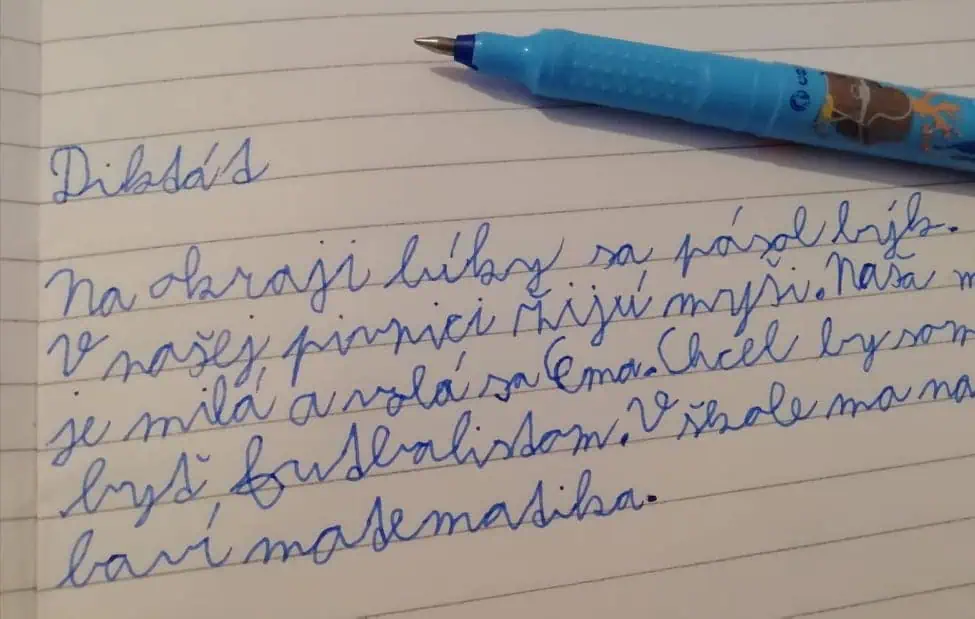 Diktát
Na okraji lúky sa pásol býk.
V našej pivnici žijú myši. Naša
je milá a volá sa Ema. Chcel by som
byť futbalistom. V škole ma na
baví matematika.